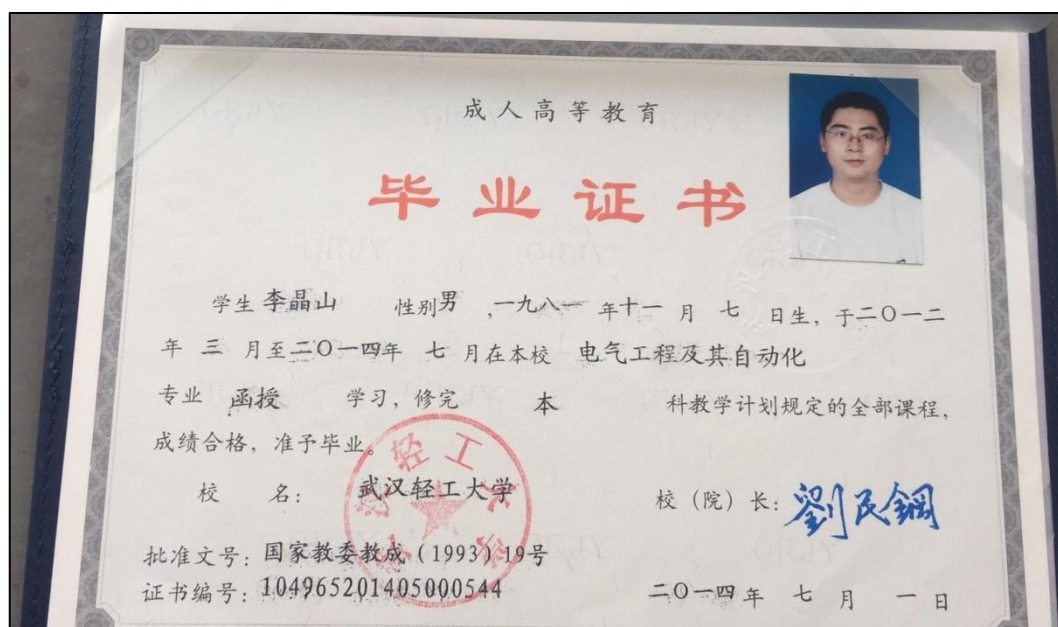 成人高等教育
毕业证书
学生 李晶山 性别 男 ,一九八一 年 十一 月 七 日生, 于二〇一二
年 三 月至 二〇一四年 七 月在本校 电气工程及其自动化
专业 函授 学习, 修完 本 科教学计划规定的全部课程,
成绩合格, 准予毕业。
校 名: 武汉轻工大学 校(院)长: 劉民鋼
批准文号: 国家教委教成(1993)19号
证书编号: 104965201405000544 二〇一四 年 七 月 一 日